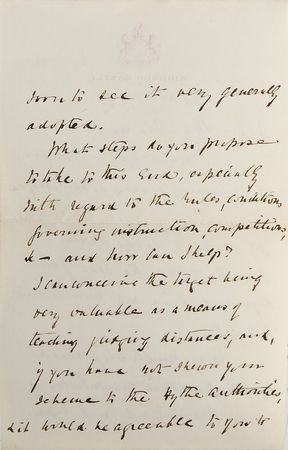 soon to see it very generally
adopted.
What steps do you propose
to take to this End, especially
with regard to the Rules, conditions
governing instruction competitions,
&c — and how can I help?
I can conceive the target being
very valuable as a means of
teaching judging distances, and,
if you have not shewn your
scheme to the Hythe authorities,
& it would be agreeable to you to